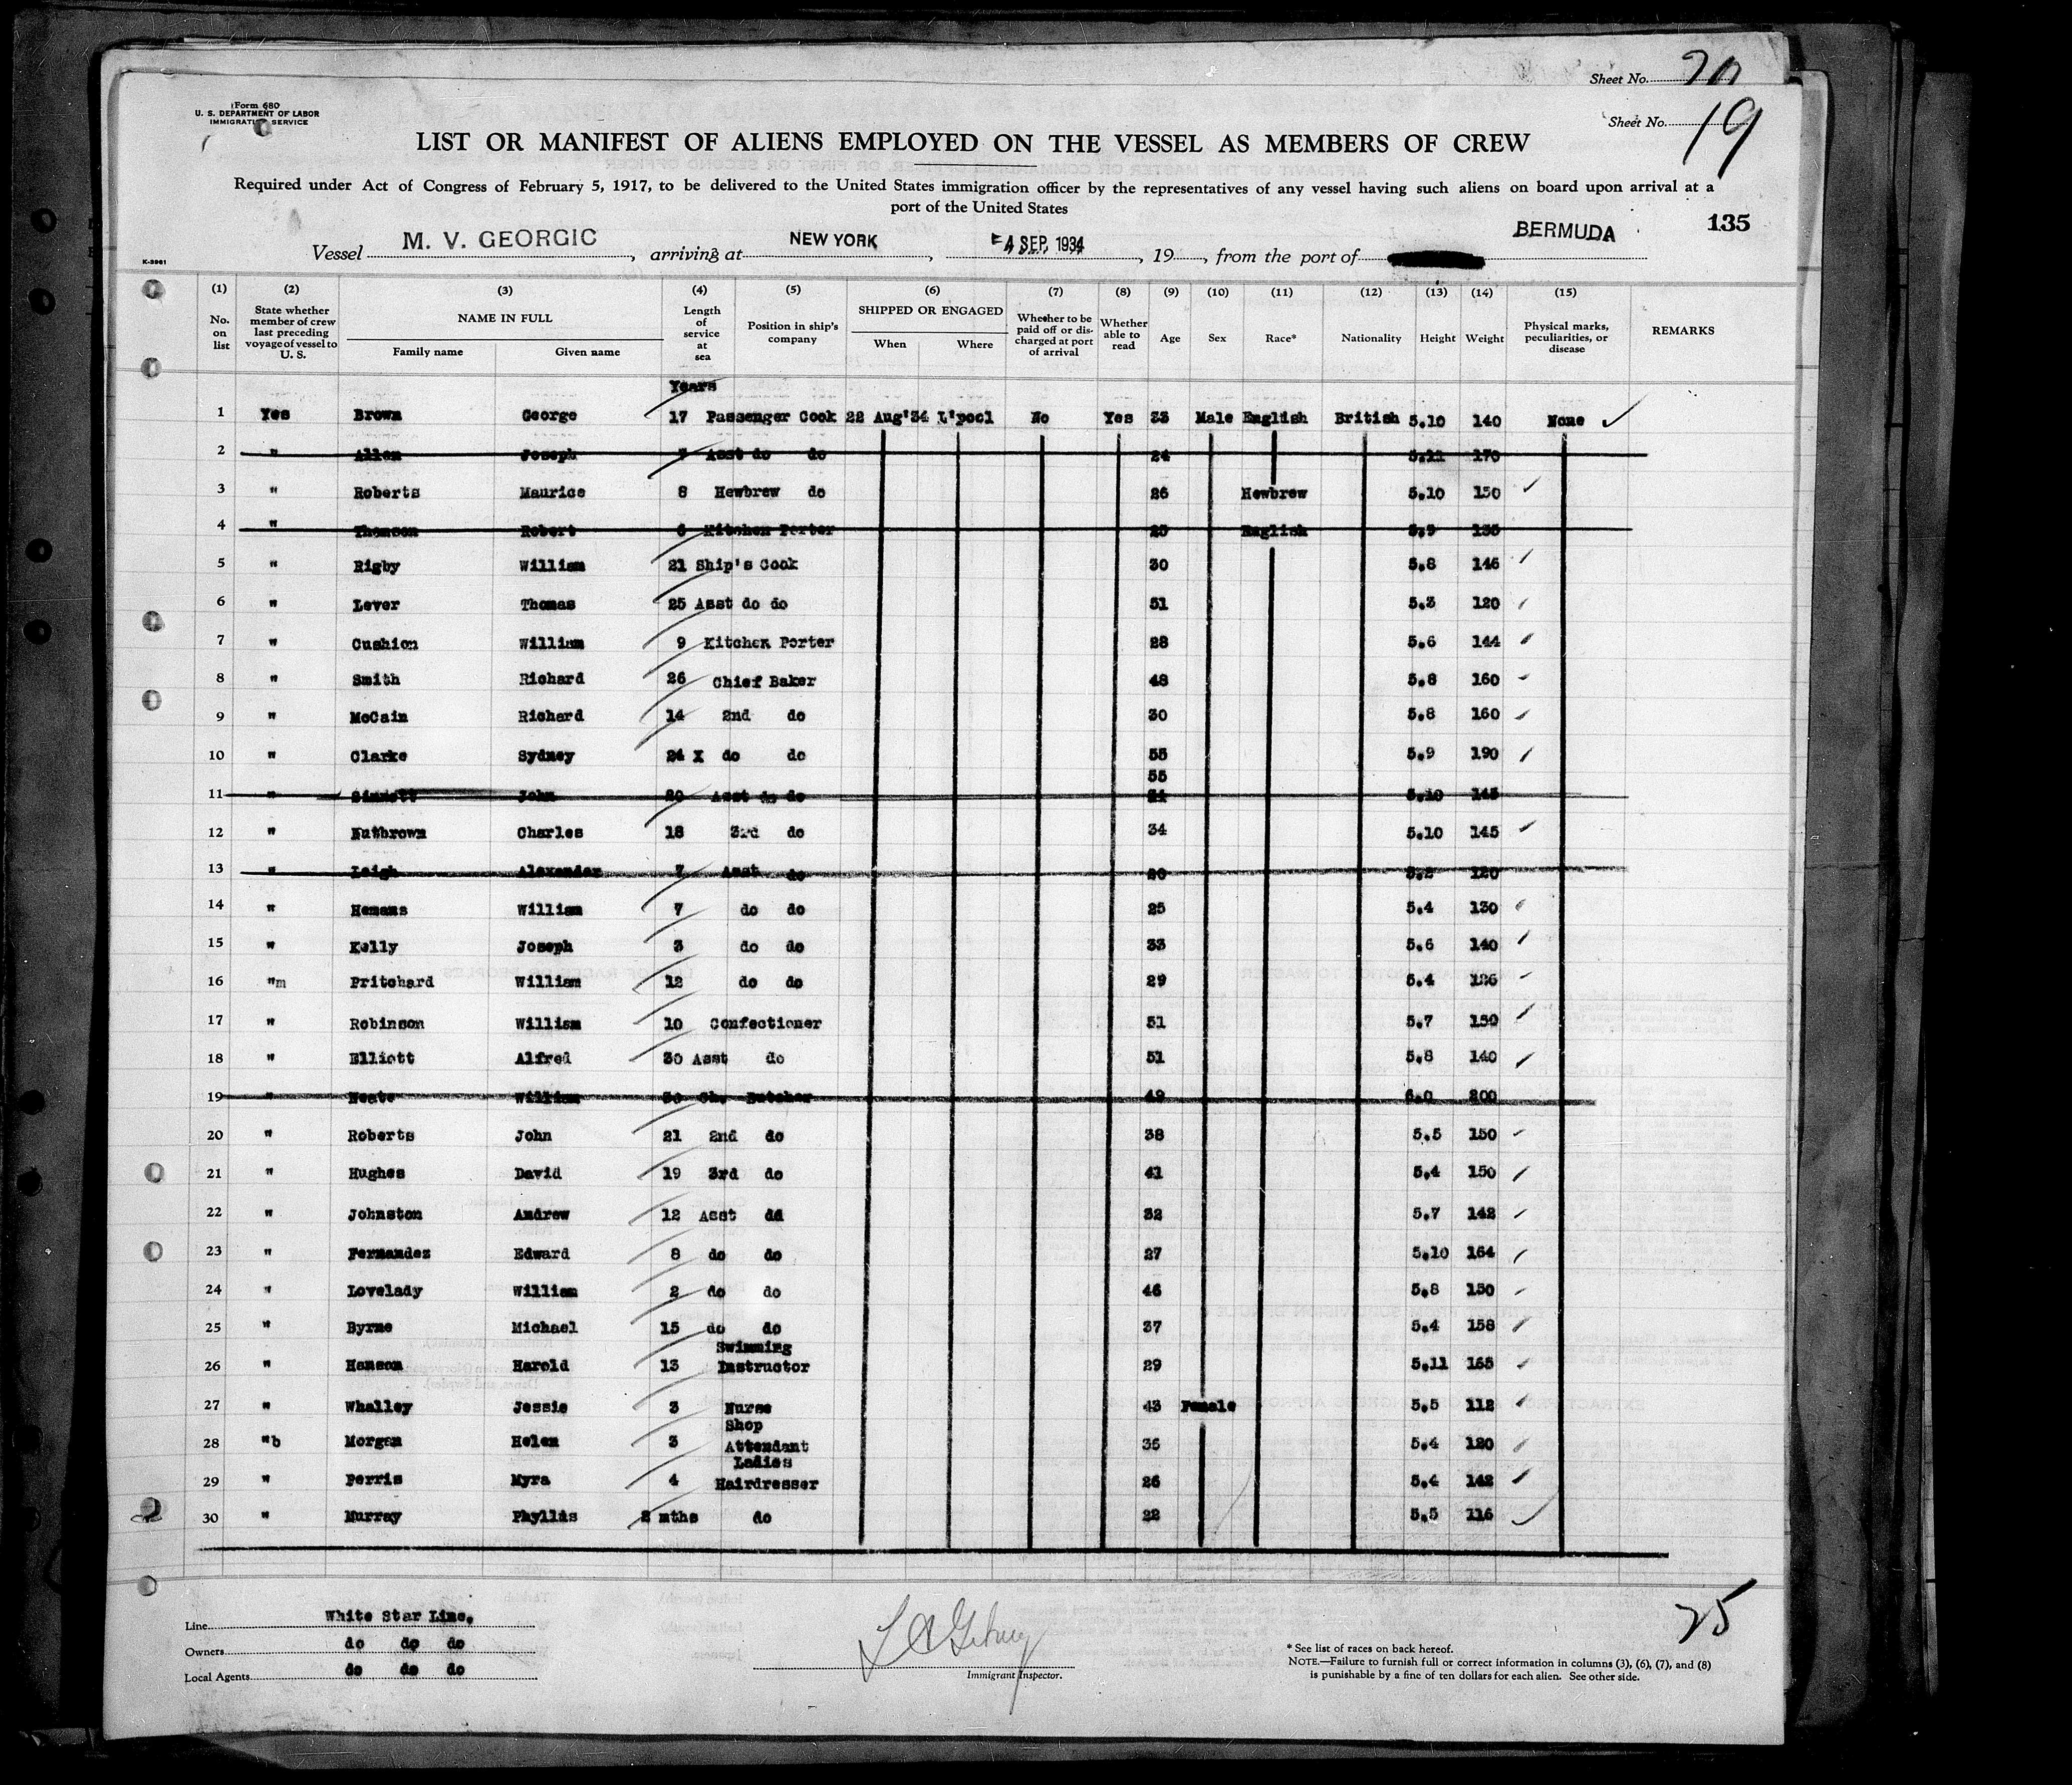 Sheet No. 20
Form 680
U. S. DEPARTMENT OF LABOR
IMMIGRATION SERVICE
Sheet No. 19
LIST OR MANIFEST OF ALIENS EMPLOYED ON THE VESSEL AS MEMBERS OF CREW
Required under Act of Congress of February 5, 1917, to be delivered to the United States immigration officer by the representatives of any vessel having such aliens on board upon arrival at a
port of the United States
135
Vessel M. V. GEORGIC, arriving at NEW YORK, 4 SEP. 1934, 19, from the port of BERMUDA
K-3961
(1) (2) (3) (4) (5) (6) (7) (8) (9) (10) (11) (12) (13) (14) (15)
No. on list State whether member of crew last preceding voyage of vessel to U. S. NAME IN FULL Family name Given name Length of service at sea Position in ship's company SHIPPED OR ENGAGED When Where Whether to be paid off or discharged at port of arrival Whether able to read Age Sex Race* Nationality Height Weight Physical marks, peculiarities, or disease REMARKS
Years
1 Yes Brown George 17 Passenger Cook 22 Aug'34 L'pool No Yes 33 Male English British 5.10 140 None ✓
2 " Allen Joseph 7 Asst do do 24 5.11 170
3 " Roberts Maurice 8 Hewbrew do 26 Hewbrew 5.10 150
4 " Thomson Robert 6 Kitchen Porter 25 English 5.9 135
5 " Rigby William 21 Ship's Cook 30 5.8 146
6 " Lever Thomas 25 Asst do do 51 5.3 120
7 " Cushion William 9 Kitchen Porter 28 5.6 144
8 " Smith Richard 26 Chief Baker 48 5.8 160
9 " McCain Richard 14 2nd do 30 5.8 160
10 " Clarke Sydney 24 X do do 55 5.9 190
55
11 " John 20 Asst do do 5.10 145
12 " Nutbrown Charles 18 3rd do 34 5.10 145
13 " Leigh Alexander 7 Asst do 5.2 120
14 " Hemans William 7 do do 25 5.4 130
15 " Kelly Joseph 3 do do 33 5.6 140
16 "m Pritchard William 12 do do 29 5.4 126
17 " Robinson William 10 Confectioner 51 5.7 150
18 " Elliott Alfred 30 Asst do 51 5.8 140
19 " Neate William 30 Ch. Butcher 49 6.0 200
20 " Roberts John 21 2nd do 38 5.5 150
21 " Hughes David 19 3rd do 41 5.4 150
22 " Johnston Andrew 12 Asst dd 32 5.7 142
23 " Fernandez Edward 8 do do 27 5.10 164
24 " Lovelady William 2 do do 46 5.8 150
25 " Byrne Michael 15 do do 37 5.4 158
26 " Hanson Harold 13 Swimming Instructor 29 5.11 165
27 " Whalley Jessie 3 Nurse 43 Female 5.5 112
28 "b Morgan Helen 3 Shop Attendant 35 5.4 120
29 " Ferris Myra 4 Ladies Hairdresser 26 5.4 142
30 " Murray Phyllis 2 mths do 22 5.5 116
25
Line White Star Line.
Owners do do do
Local Agents do do do
Immigrant Inspector.
* See list of races on back hereof.
NOTE.—Failure to furnish full or correct information in columns (3), (6), (7), and (8)
is punishable by a fine of ten dollars for each alien. See other side.